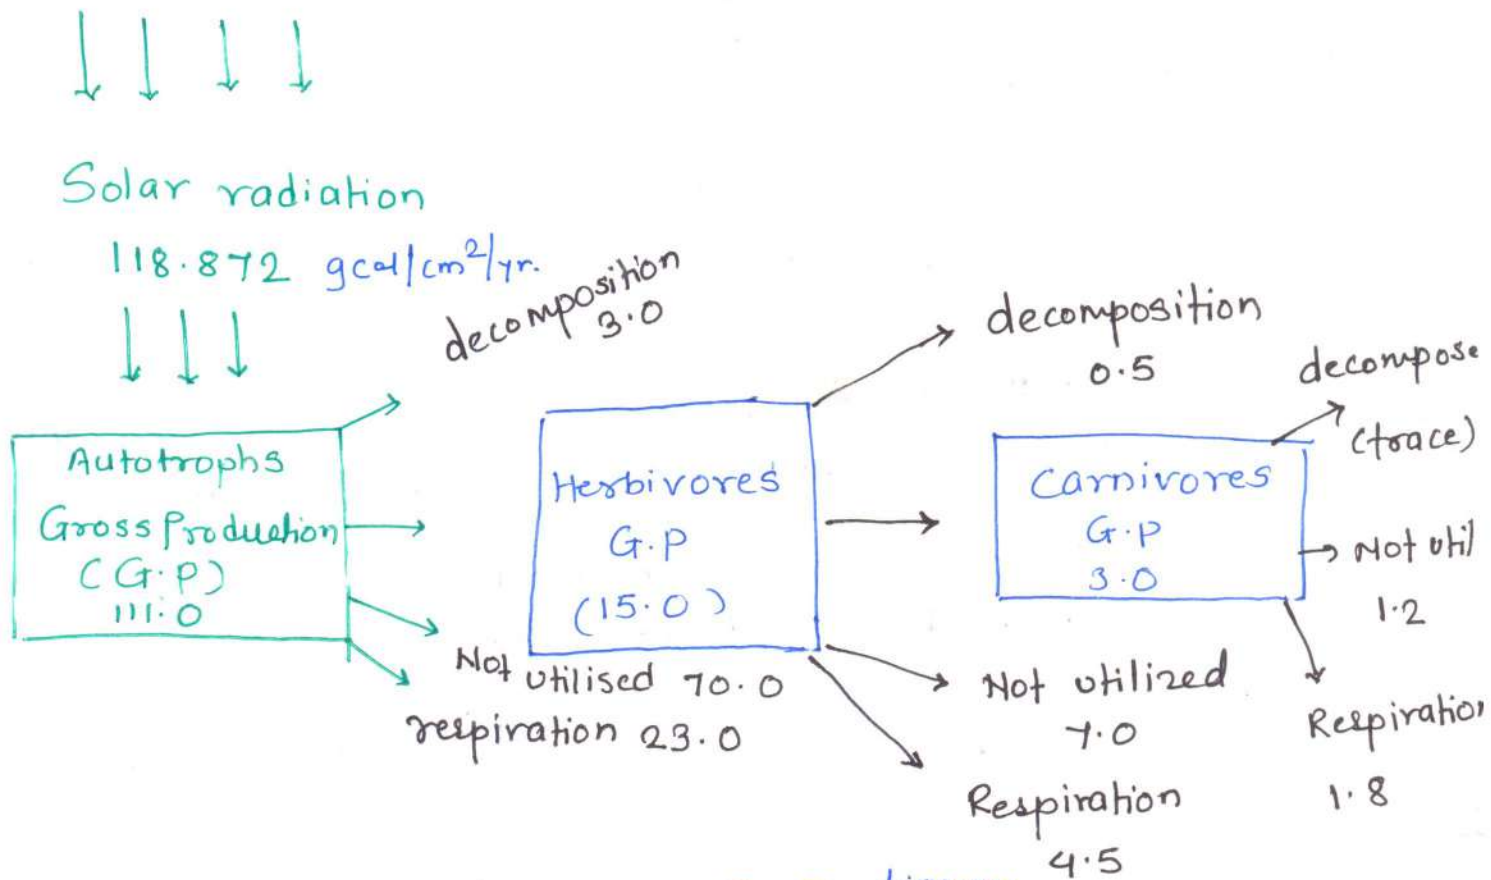 Solar radiation
118.872 gcal/cm²/yr.
decomposition
3.0
Autotrophs
Gross Production
(G.P)
111.0
Not utilised 70.0
respiration 23.0
Herbivores
G.P
(15.0)
decomposition
0.5
Not utilized
7.0
Respiration
4.5
Carnivores
G.P
3.0
decompose
(trace)
Not util
1.2
Respiration
1.8